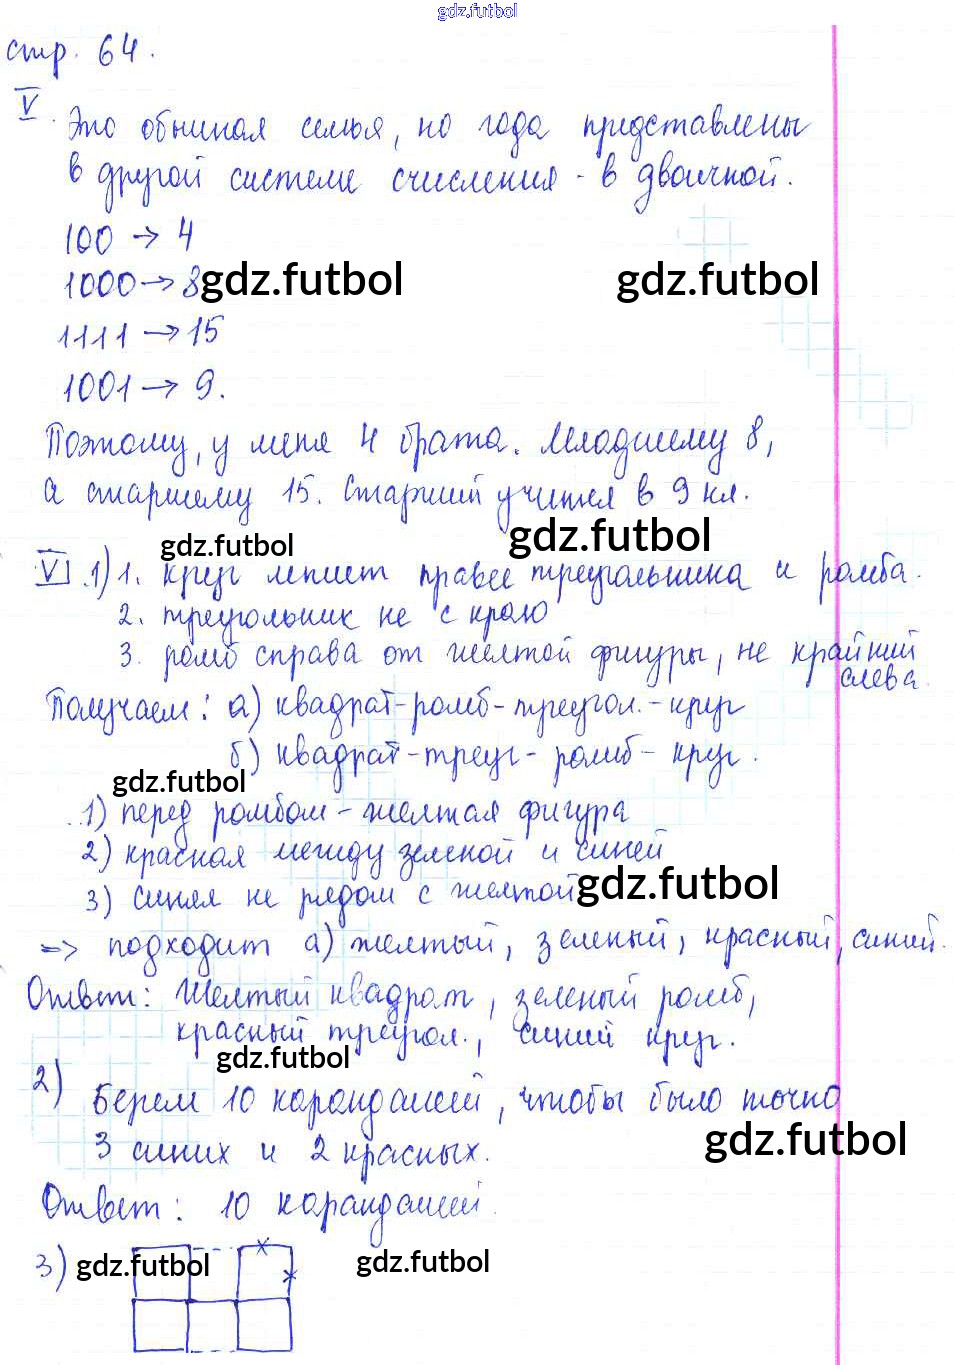 gdz.futbol
стр. 64.
V. Это обычная семья, но года представлены
в другой системе счисления - в двоичной.
100 → 4
1000 → 8
gdz.futbol gdz.futbol
1111 → 15
1001 → 9.
Поэтому, у меня 4 брата. Младшему 8,
а старшему 15. Старший учится в 9 кл.
gdz.futbol gdz.futbol
VI .1) 1. круг лежит правее треугольника и ромба.
2. треугольник не с краю
3. ромб справа от желтой фигуры, не крайний
слева.
Получаем: а) квадрат-ромб-треугол.-круг
б) квадрат-треуг-ромб-круг.
gdz.futbol
1) перед ромбом - желтая фигура
2) красная между зеленой и синей
3) синяя не рядом с желтой
gdz.futbol
=> подходит а) желтый, зеленый, красный, синий.
Ответ: Желтый квадрат, зеленый ромб,
красный треугол., синий круг.
gdz.futbol
2) Берем 10 карандашей, чтобы было точно
3 синих и 2 красных.
gdz.futbol
Ответ: 10 карандашей.
3) gdz.futbol gdz.futbol